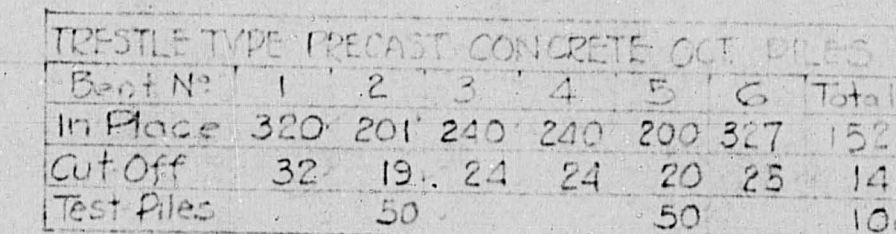 TRESTLE TYPE PRECAST CONCRETE OCT. PILES
Bent Nº 1 2 3 4 5 6 Total
In Place 320 201 240 240 200 327 152
Cut Off 32 19 24 24 20 25 14
Test Piles 50 50 10